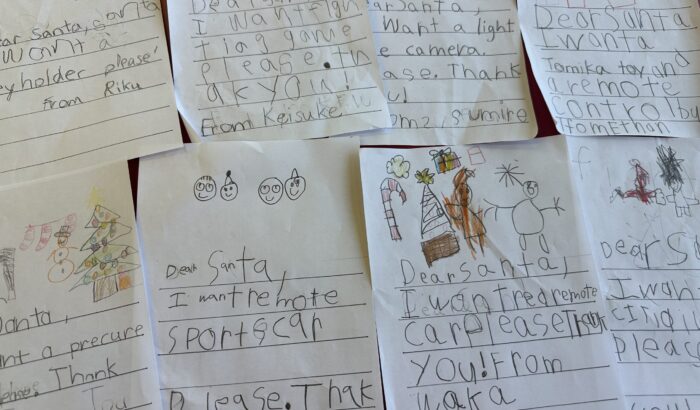 Santa,
want a
holder please!
from Riku
Dear
I want
ting game
please. th
ank you!
From Keisuke
ear Santa
want a light
camera.
ase. Thank
Sumire
Dear Santa
I want a
Tomika toy and
a remote
control bu
from Ethan
Santa,
nt a precure
Thank
Dear Santa,
I want remote
sports car
Please. Thak
Dear Santa,
I want red a remote
car please Thank
you! From
waka
Dear S
I wan
Pleac